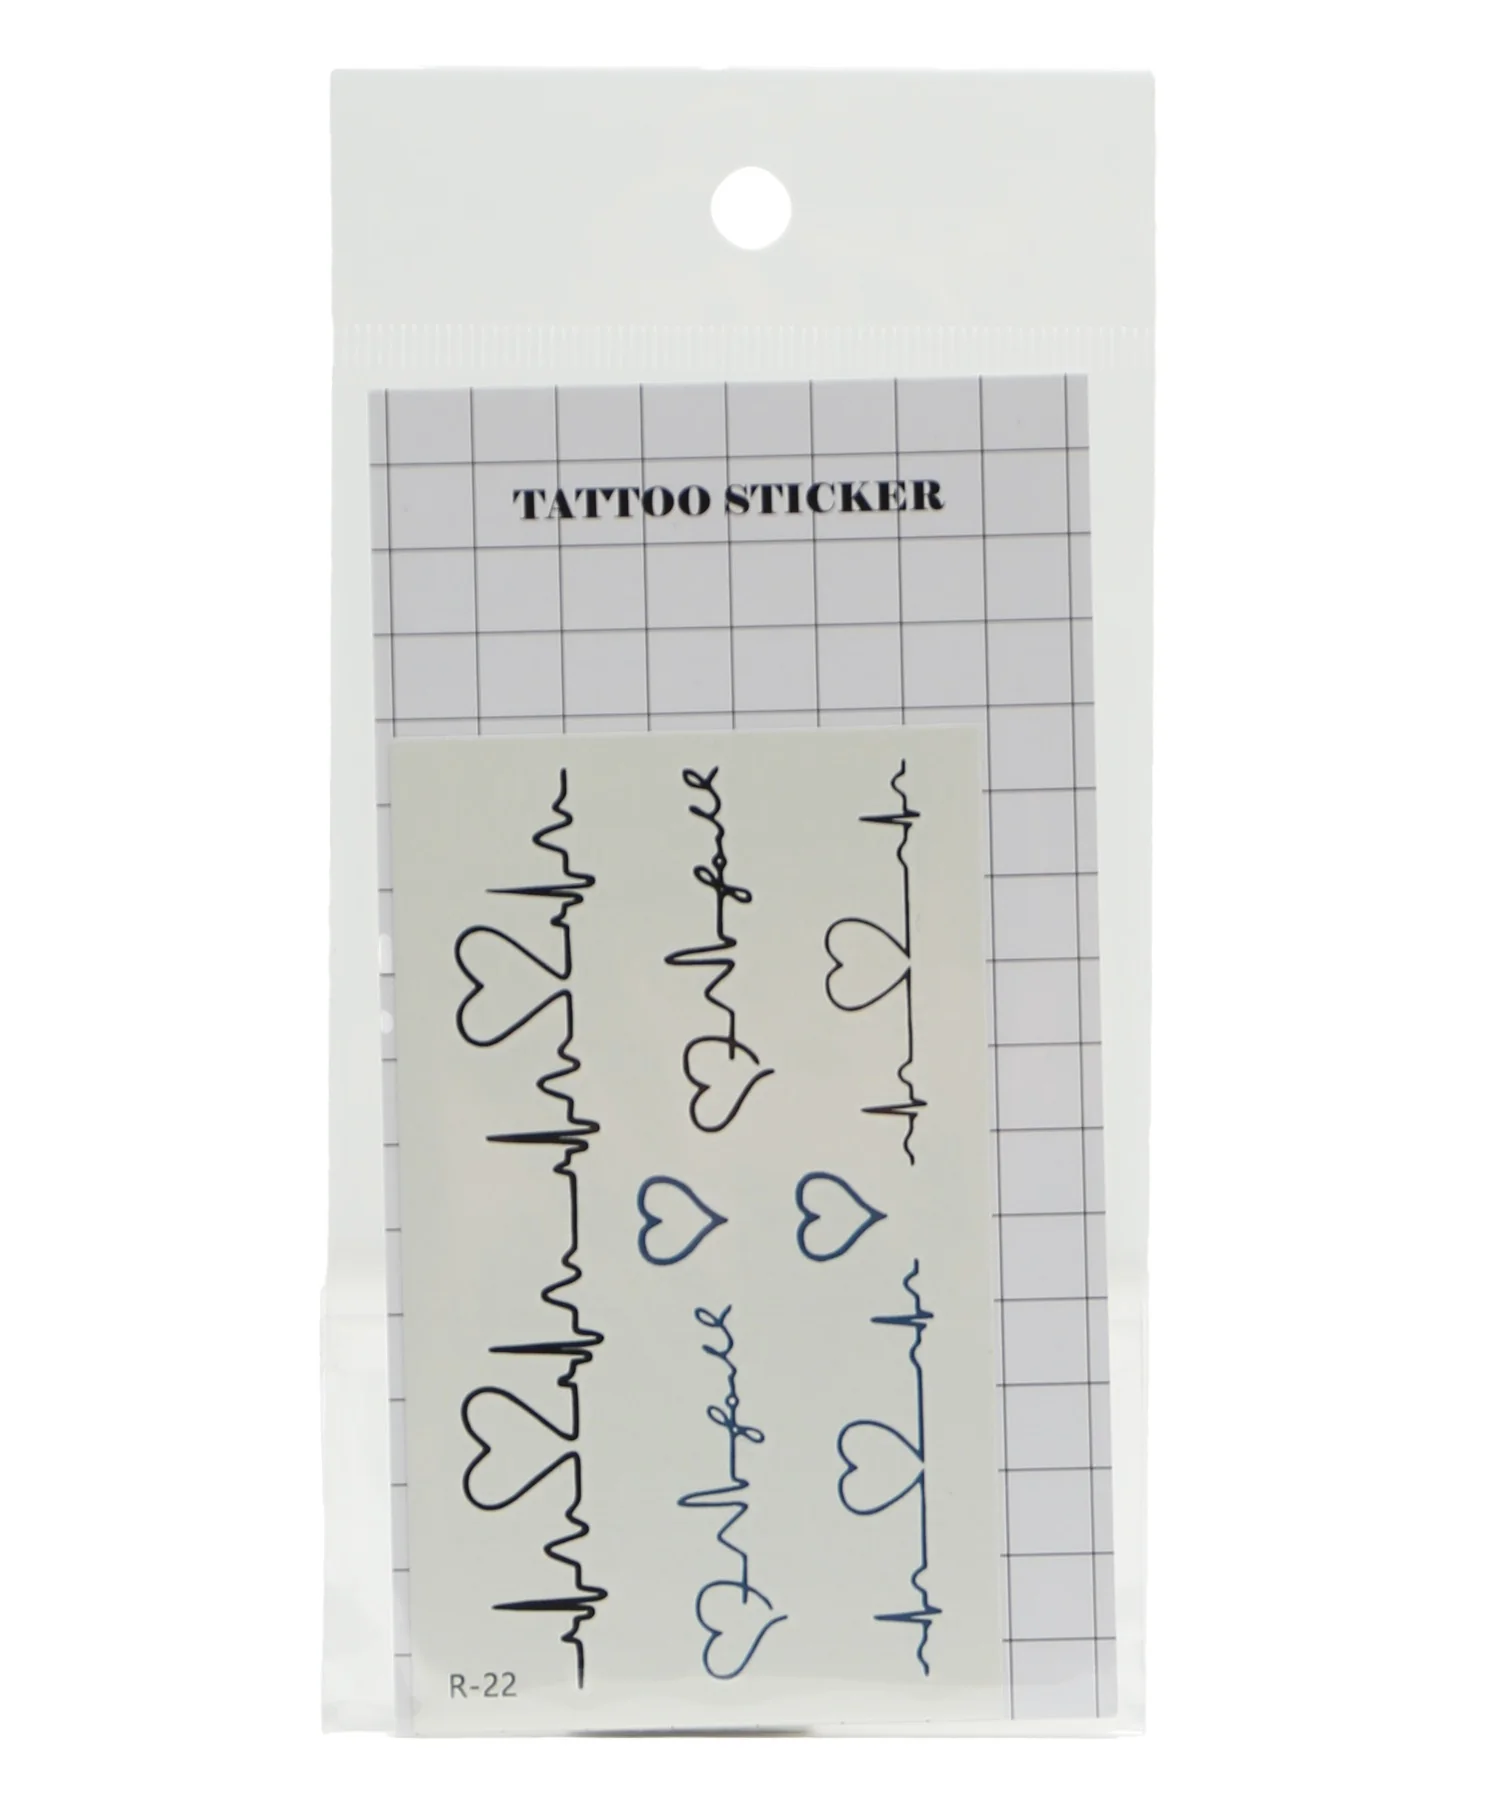 TATTOO STICKER
R-22